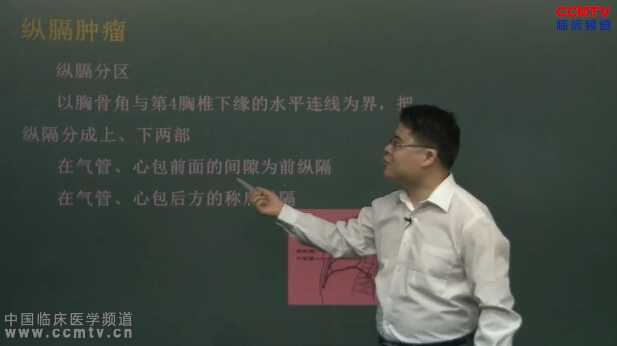 CCMTV
临床频道
纵膈肿瘤
纵膈分区
以胸骨角与第4胸椎下缘的水平连线为界，把
纵隔分成上、下两部
在气管、心包前面的间隙为前纵隔
在气管、心包后方的称后 隔
中国临床医学频道
www.ccmtv.cn